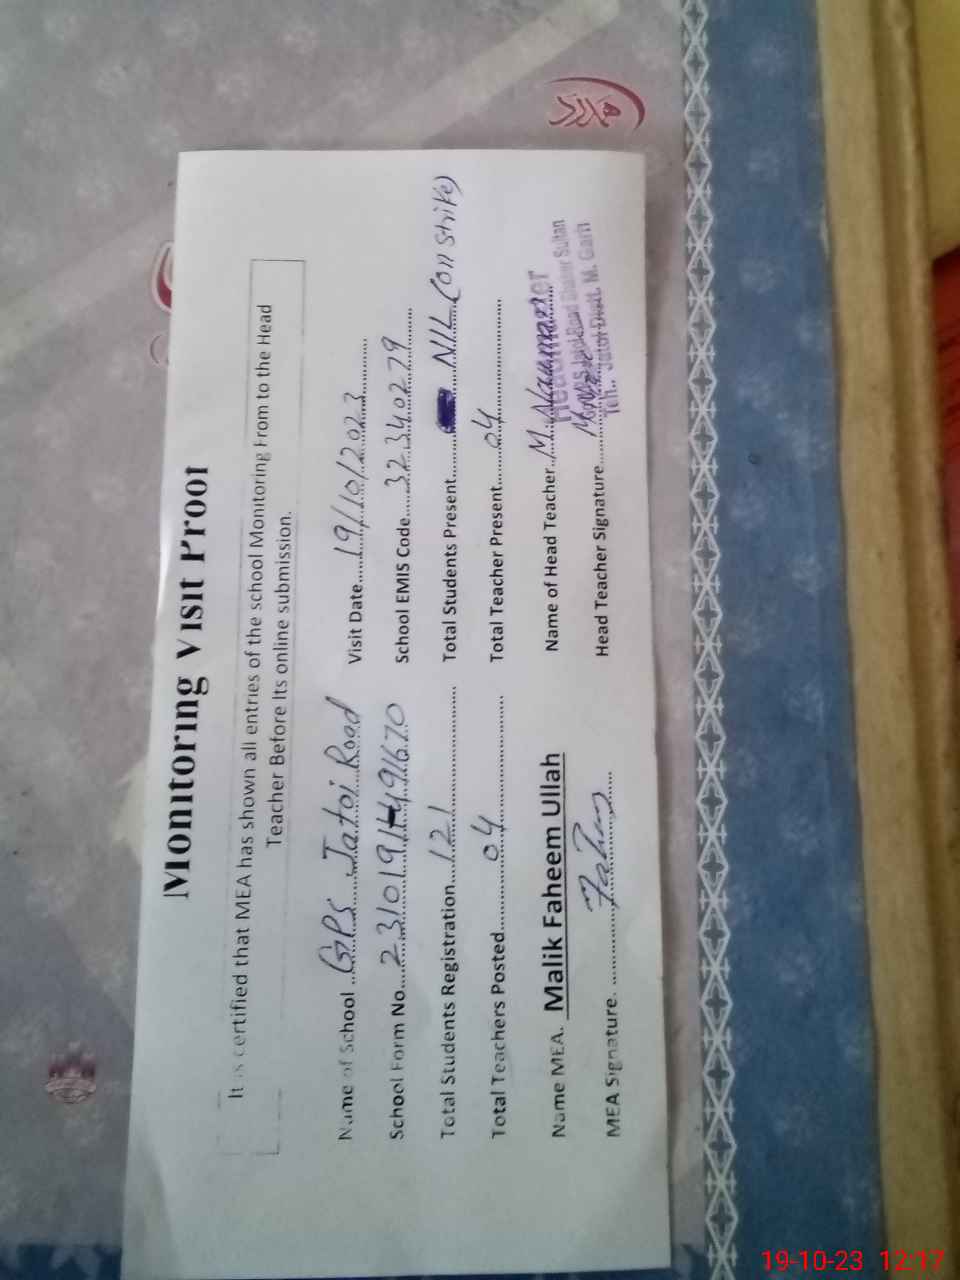 Monitoring Visit Proof
It is certified that MEA has shown all entries of the school Monitoring From to the Head
Teacher Before Its online submission.
Name of School ..GPS Jatoi Road Visit Date.....19/10/2023
School Form No...2310191491670 School EMIS Code....32340279
Total Students Registration....121 Total Students Present.... NIL (on strike)
Total Teachers Posted....04 Total Teacher Present....04
Name MEA. Malik Faheem Ullah Name of Head Teacher..M.
MEA Signature. Head Teacher Signature
Headmaster
Jatoi Road
Teh.. Jatoi Distt. M. Garh
19-10-23 12:17